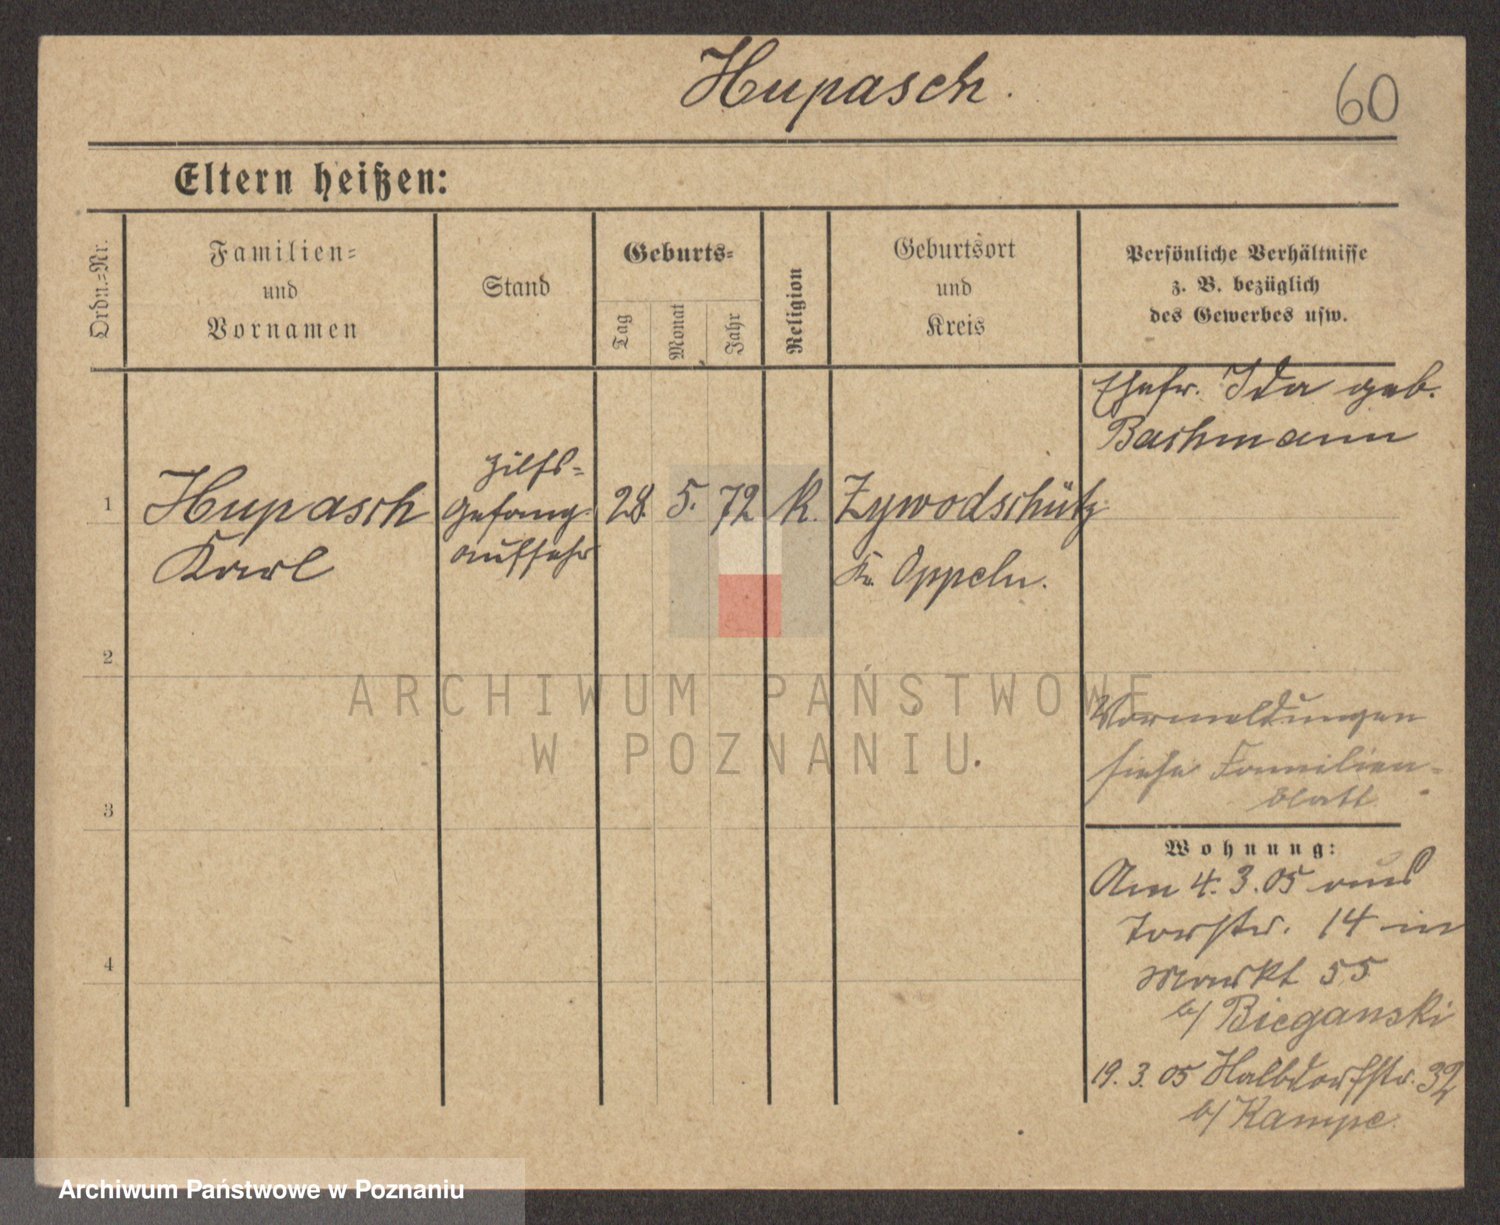 Hupasch.
60
Eltern heißen:
Ordn.=Nr.
Familien=
und
Vornamen
Stand
Geburts=
Tag
Monat
Jahr
Religion
Geburtsort
und
Kreis
Persönliche Verhältnisse
z. B. bezüglich
des Gewerbes usw.
1
Hupasch
Karl
Hilfs-
gefang.
aufseher
28. 5. 72
K.
Zywodschütz
Kr. Oppeln.
Ehefr. Ida geb.
Bachmann
2
3
4
Vormeldungen
siehe Familien-
blatt
Wohnung:
Am 4.3.05 aus
Torstr. 14 in
Markt 55
b/ Bieganski
19.3.05 Halbdorfstr. 32
b/ Kampe
ARCHIWUM PAŃSTWOWE
W POZNANIU
Archiwum Państwowe w Poznaniu